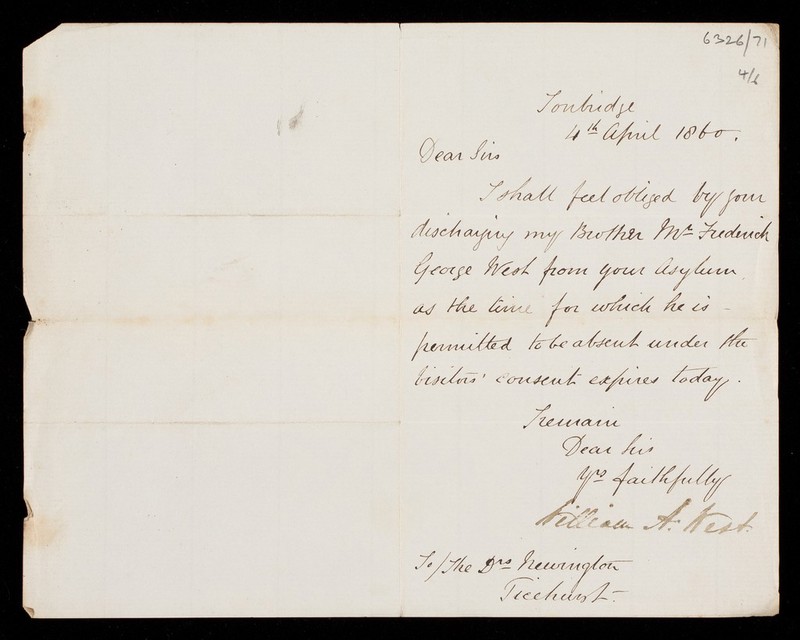 6326/71
4/6
Tonbridge
4th April 1860.
Dear Sirs
I shall feel obliged by your
discharging my Brother Mr Frederick
George West from your Asylum
as the time for which he is -
permitted to be absent under the
Visitors' consent expires today.
I remain
Dear Sirs
Yrs faithfully
William A. West.
To/The Drs Newington
Ticehurst-